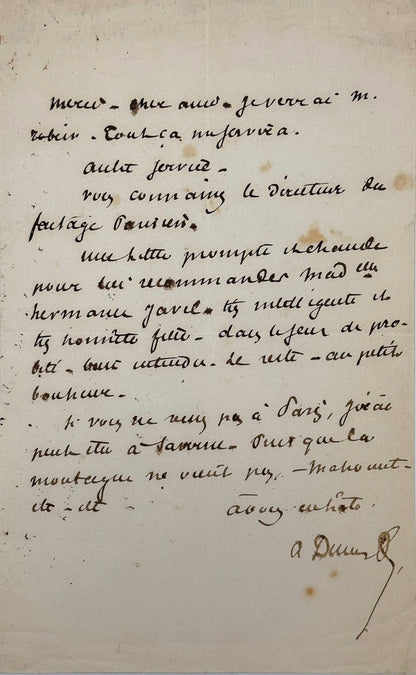 merci - cher ami - je verrai M.
robin. Tout ça me servira.
autre service -
vous connaissez le Directeur du
factage Parisien.
une lettre prompte et chaude
pour lui recommander Mad elle
hermance - très intelligente et
très honnête fille - dans le sens de pro-
bité - bien entendu. Le reste - au petit
bonheur -
Si vous ne venez pas à Paris, j'irai
peut etre à Saverne - Puis que la
montagne ne vient pas, - Mahomet -
etc - etc à vous
a Dumas